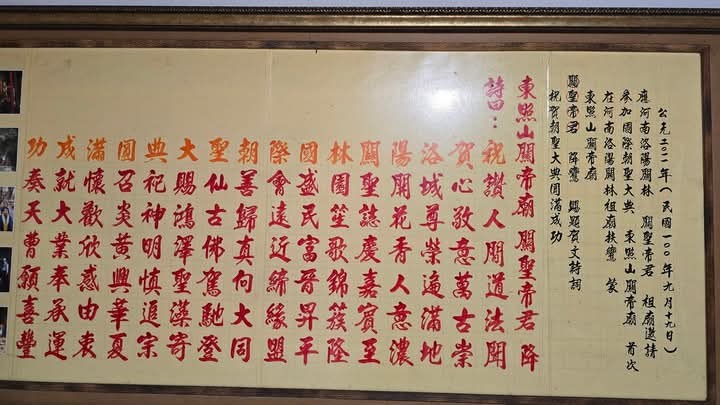 公元二○一一年(民國一○○年九月十九日)
應河南洛陽關林 關聖帝君 祖廟邀請
參加國際朝聖大典 東照山關帝廟 首次
在河南洛陽關林祖廟扶鸞 蒙
東照山關帝廟
關聖帝君 降鸞 賜題賀文詩詞
祝賀朝聖大典圓滿成功
東照山關帝廟 關聖帝君 降
詩曰：
祝讚人間道法開
賀心敬意萬古崇
洛城尊榮遍滿地
陽開花香人意濃
關聖誌慶嘉賓至
林園笙歌錦簇隆
國盛民富晉昇平
際會遠近締緣盟
朝善歸真向大同
聖仙古佛駕馳登
大賜鴻澤聖藻寄
典祀神明慎追宗
圓召炎黃興華夏
滿懷歡欣感由衷
成就大業奉承運
功奏天曹願喜豐